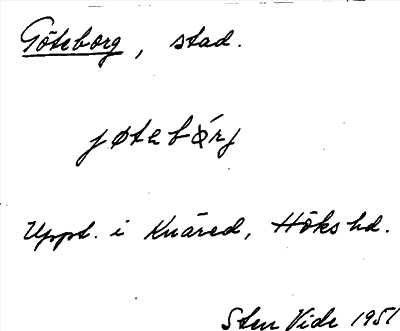 Göteborg, stad.
jøtebǿrj
Uppt. i Knäred, Höks hd.
Sten Vide 1951